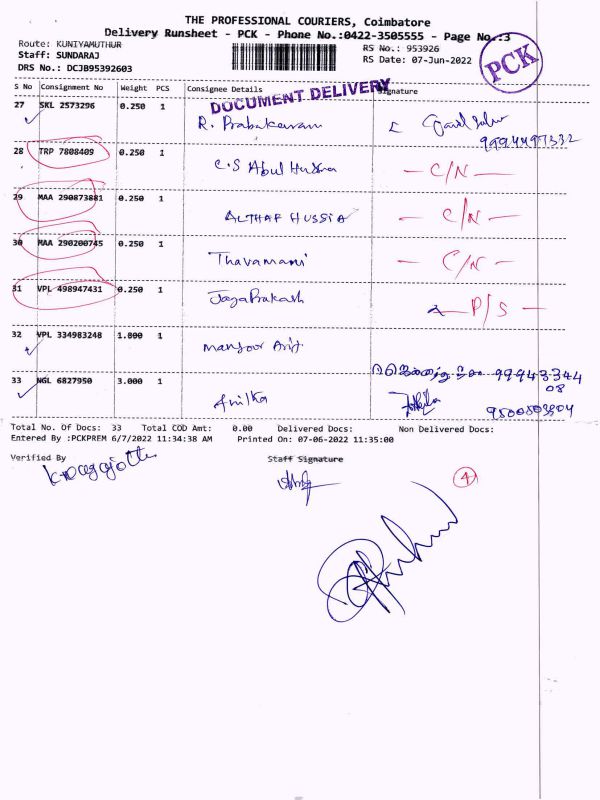 THE PROFESSIONAL COURIERS, Coimbatore
Delivery Runsheet - PCK - Phone No.:0422-3505555 - Page No.:3
Route: KUNIYAMUTHUR
Staff: SUNDARAJ
DRS No.: DCJB95392603
RS No.: 953926
RS Date: 07-Jun-2022
PCK
S No Consignment No Weight PCS Consignee Details Signature
DOCUMENT DELIVERY
27 SKL 2573296 0.250 1 R. Prabakaran
28 TRP 7808409 0.250 1 C.S Abul Hussna — C/N —
29 MAA 290873881 0.250 1 ALTHAF HUSSIA — C/N —
30 MAA 290200745 0.250 1 Thavamani — C/N —
31 VPL 498947431 0.250 1 JayaPrakash — P/S —
32 VPL 334983248 1.800 1 Mansoor 99943344
08
33 NGL 6827950 3.000 1 Anitha 9500803904
Total No. Of Docs: 33 Total COD Amt: 0.00 Delivered Docs: Non Delivered Docs:
Entered By :PCKPREM 6/7/2022 11:34:38 AM Printed On: 07-06-2022 11:35:00
Verified By Staff Signature
4